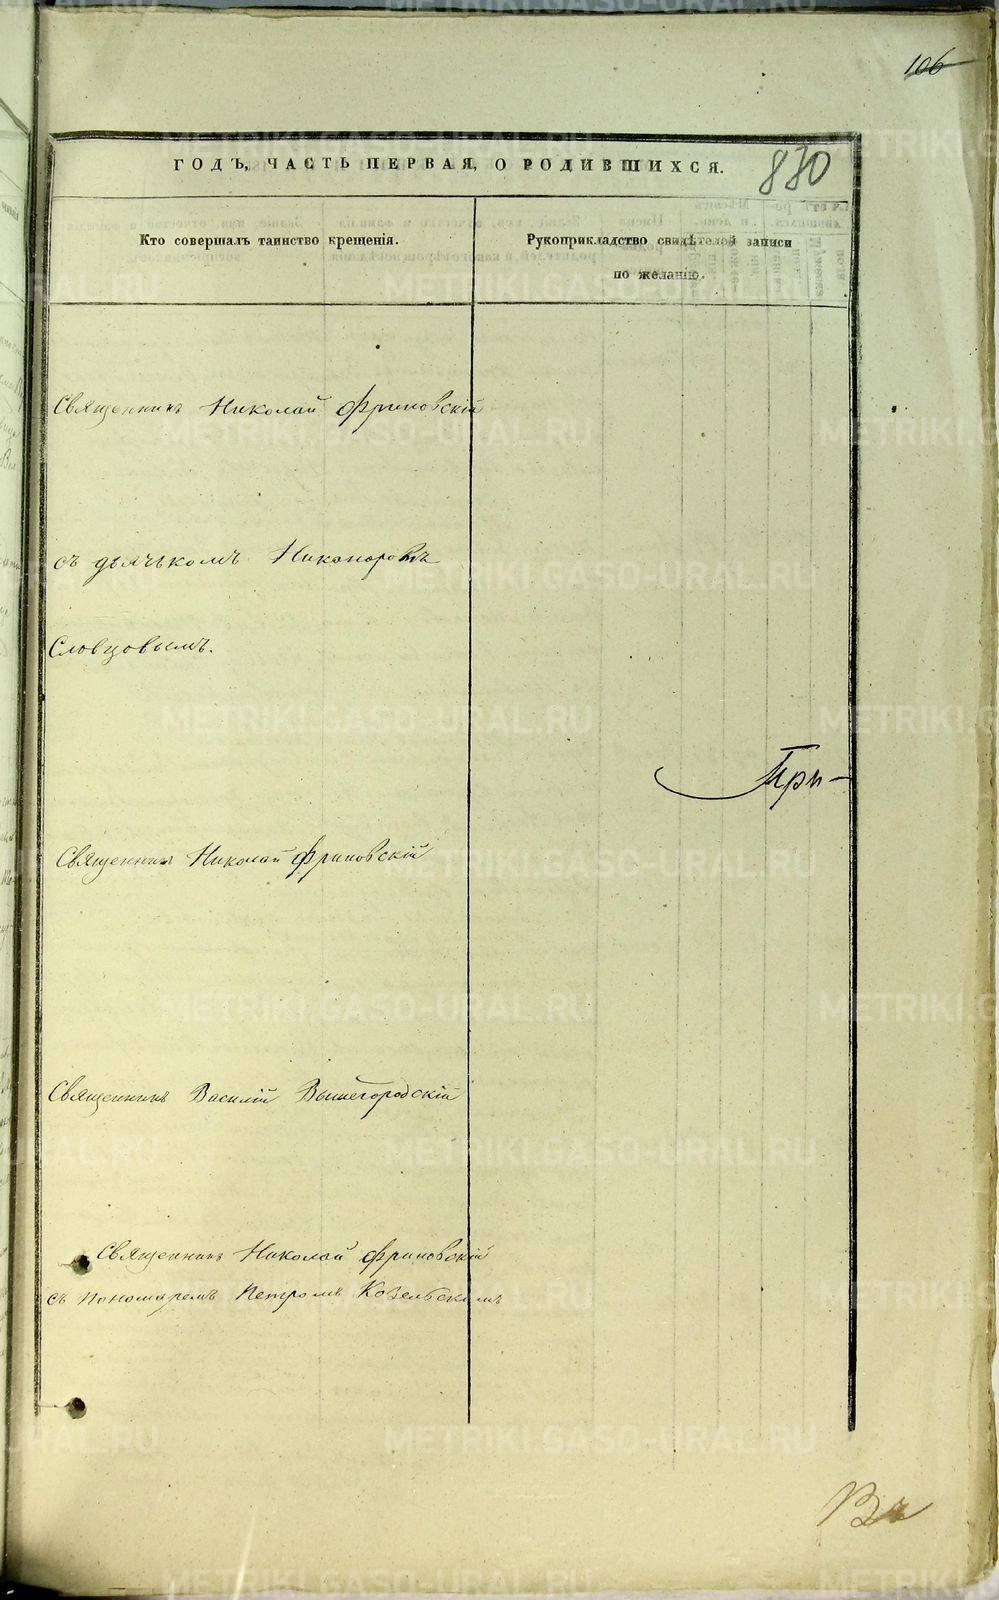 106
ГОДЪ, ЧАСТЬ ПЕРВАЯ, О РОДИВШИХСЯ.
830
Кто совершалъ таинство крещенія.
Рукоприкладство свидѣтелей записи
по желанію.
Священникъ Николай Фриновскій
съ дьячькомъ Никаноромъ
Словцовымъ.
При-
Священникъ Николай Фриновскій
Священникъ Василій Вышегородскій
Священникъ Николай Фриновскій
съ пономаремъ Петромъ Козельскимъ
METRIKI.GASO-URAL.RU